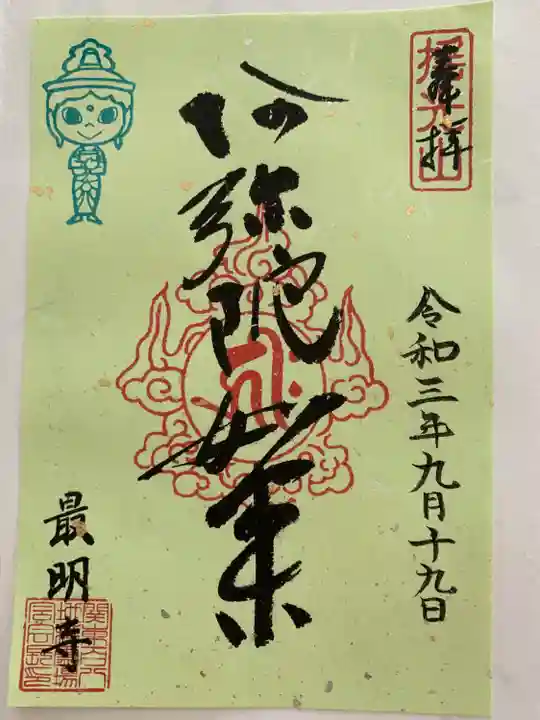 奉拝
令和三年九月十九日
阿弥陀如来
最明寺